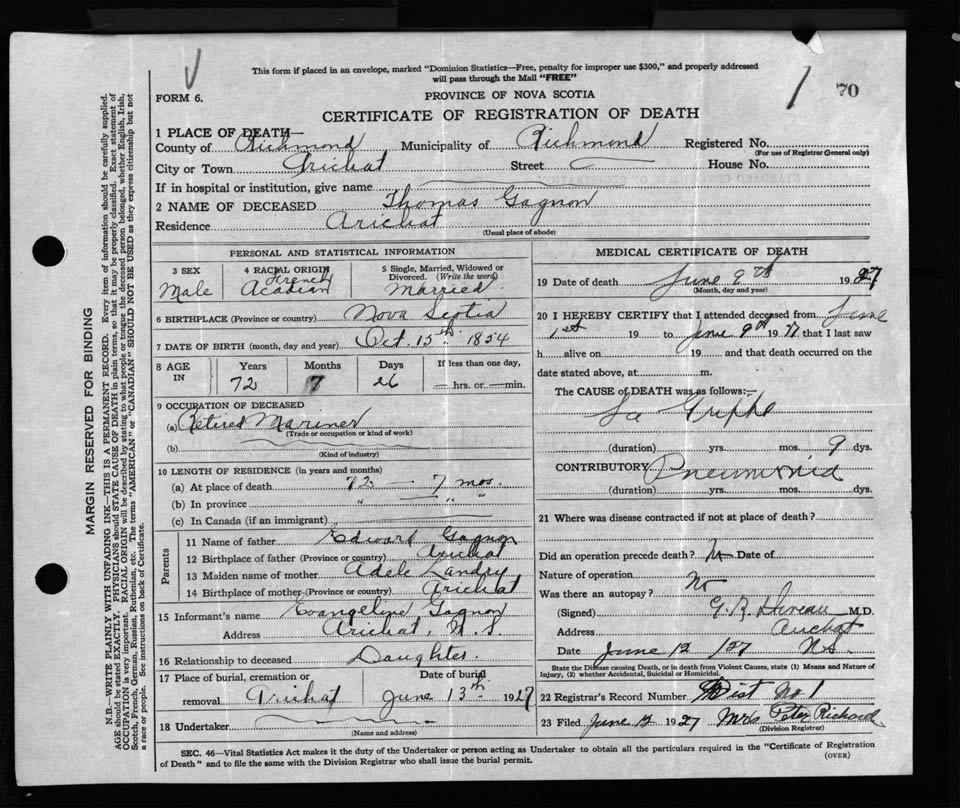 This form if placed in an envelope, marked "Dominion Statistics—Free, penalty for improper use $300," and properly addressed
will pass through the Mail "FREE"
FORM 6.
PROVINCE OF NOVA SCOTIA
1 70
CERTIFICATE OF REGISTRATION OF DEATH
1 PLACE OF DEATH—
County of Richmond Municipality of Richmond Registered No.
(For use of Registrar General only)
City or Town Arichat Street House No.
If in hospital or institution, give name
2 NAME OF DECEASED Thomas Gagnon
Residence Arichat
(Usual place of abode)
MARGIN RESERVED FOR BINDING
N.B.—WRITE PLAINLY WITH UNFADING INK—THIS IS A PERMANENT RECORD. Every item of information should be carefully supplied.
AGE should be stated EXACTLY. PHYSICIANS should STATE CAUSE OF DEATH in plain terms, so that it may be properly classified. Exact statement of
OCCUPATION is very important. RACIAL ORIGIN will be described by stating to what people or tongue the deceased person belonged, whether English, Irish,
Scotch, French, German, Russian, Ruthenian, etc. The terms "AMERICAN" or "CANADIAN" SHOULD NOT BE USED as they express citizenship but not
a race or people. See instructions on back of Certificate.
PERSONAL AND STATISTICAL INFORMATION
3 SEX
Male
4 RACIAL ORIGIN
French
Acadian
5 Single, Married, Widowed or
Divorced. (Write the word)
Married
6 BIRTHPLACE (Province or country) Nova Scotia
7 DATE OF BIRTH (month, day and year) Oct. 15th 1854
8 AGE
IN
Years
72
Months
7
Days
26
If less than one day,
hrs. or min.
9 OCCUPATION OF DECEASED
(a) Retired Mariner
(Trade or occupation or kind of work)
(b)
(Kind of industry)
10 LENGTH OF RESIDENCE (in years and months)
(a) At place of death 72 — 7 mos.
(b) In province " — " "
(c) In Canada (if an immigrant)
Parents
11 Name of father Edward Gagnon
12 Birthplace of father (Province or country) Arichat
13 Maiden name of mother Adele Landry
14 Birthplace of mother (Province or country) Arichat
15 Informant's name Evangeline Gagnon
Address Arichat, N.S.
16 Relationship to deceased Daughter.
17 Place of burial, cremation or Date of burial
removal Arichat June 13th 1927
18 Undertaker
(Name and address)
MEDICAL CERTIFICATE OF DEATH
19 Date of death June 9th 1927
(Month, day and year)
20 I HEREBY CERTIFY that I attended deceased from June
1st 19 to June 9th 19 that I last saw
h alive on 19 and that death occurred on the
date stated above, at m.
The CAUSE of DEATH was as follows:—
La Grippe
(duration) yrs. mos. 9 dys.
CONTRIBUTORY Pneumonia
(duration) yrs. mos. dys.
21 Where was disease contracted if not at place of death?
Did an operation precede death? Date of
Nature of operation
Was there an autopsy? No
(Signed) M.D.
Address Arichat
Date June 12 /27 N.S.
State the Disease causing Death, or in death from Violent Causes, state (1) Means and Nature of
Injury, (2) whether Accidental, Suicidal or Homicidal.
22 Registrar's Record Number Dist No 1
23 Filed June 12 1927 Mrs Peter Richard
(Division Registrar)
SEC. 46—Vital Statistics Act makes it the duty of the Undertaker or person acting as Undertaker to obtain all the particulars required in the "Certificate of Registration
of Death" and to file the same with the Division Registrar who shall issue the burial permit.
(OVER)